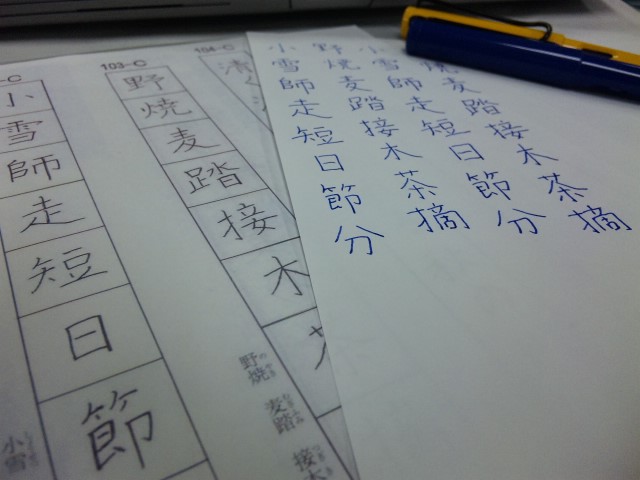 -C
小
雪
師
走
短
日
節
小雪
103-C
野
焼
麦
踏
接
木
野焼
麦踏
接木
104-C
小 野 小 野
雪 焼 雪 焼
師 麦 師 麦
走 踏 走 踏
短 接 短 接
日 木 日 木
節 茶 節 茶
分 摘 分 摘